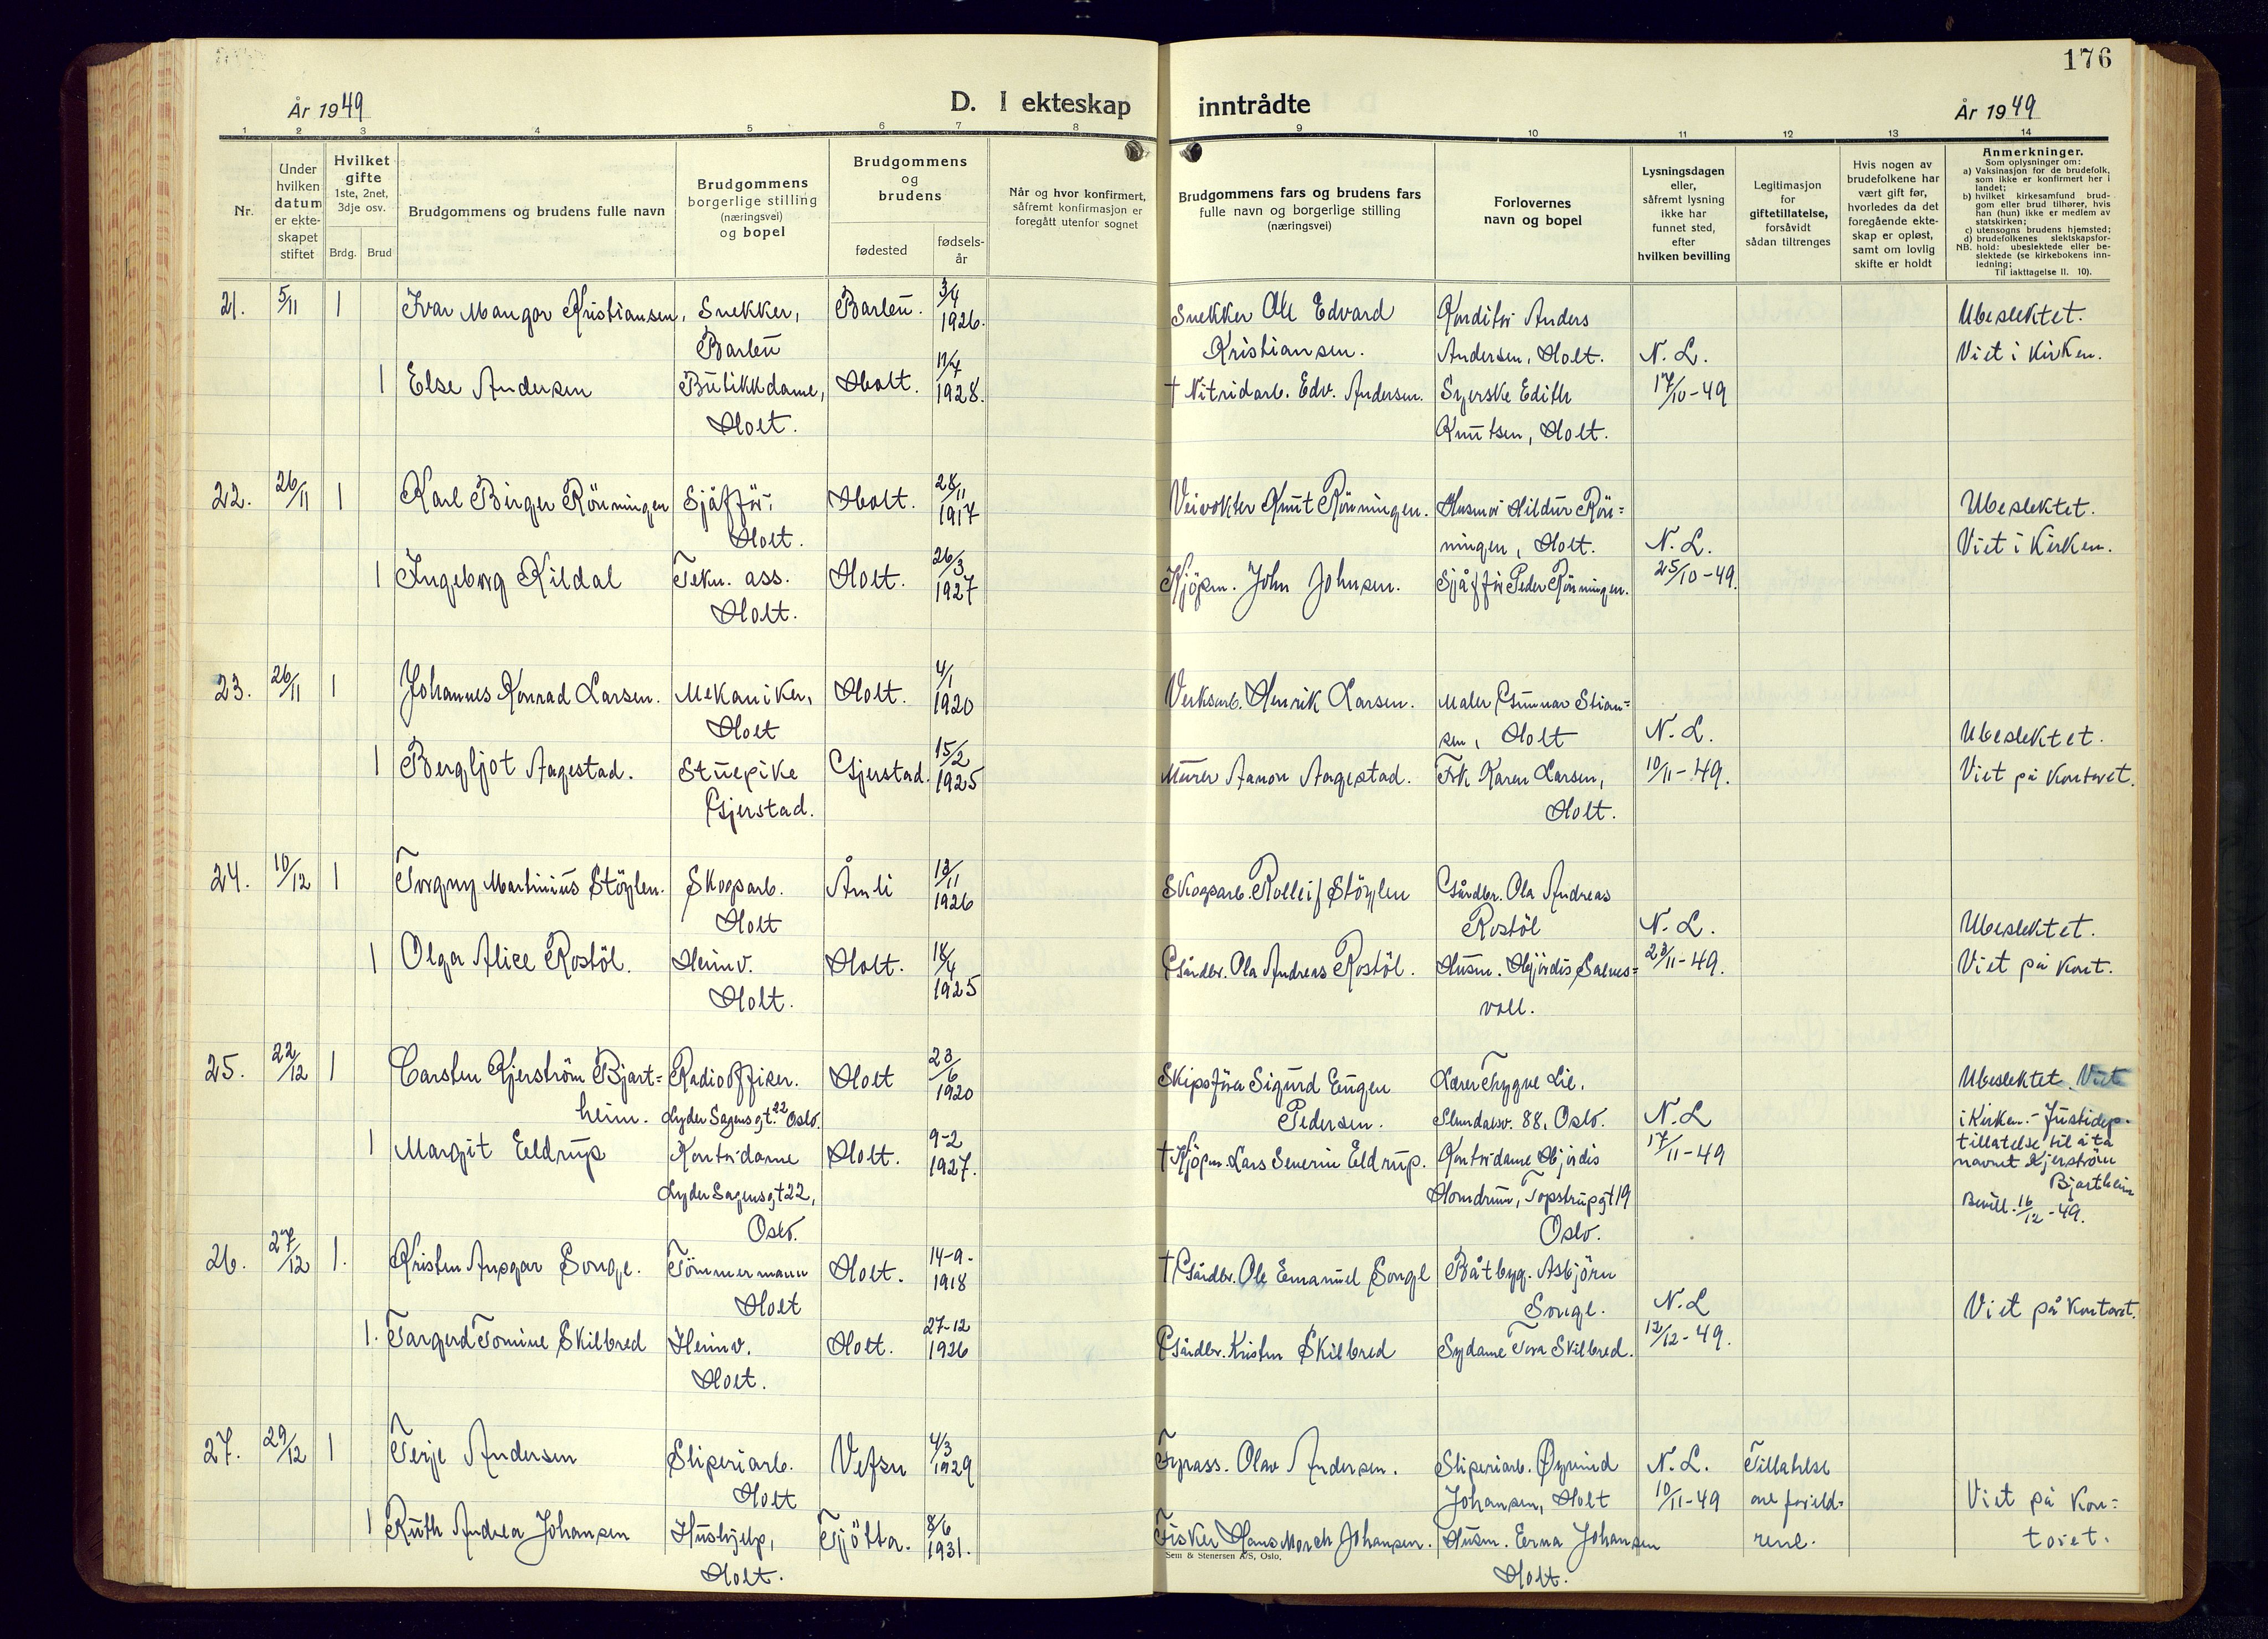 176
År 1949
D. I ekteskap inntrådte
År 1949
1 2 3 4 5 6 7 8 9 10 11 12 13 14
Nr.
Under hvilken datum er ekteskapet stiftet
Hvilket gifte 1ste, 2net, 3dje osv.
Brdg. Brud
Brudgommens og brudens fulle navn
Brudgommens borgerlige stilling (næringsvei) og bopel
Brudgommens og brudens
fødested
fødselsår
Når og hvor konfirmert, såfremt konfirmasjon er foregått utenfor sognet
Brudgommens fars og brudens fars fulle navn og borgerlige stilling (næringsvei)
Forlovernes navn og bopel
Lysningsdagen eller, såfremt lysning ikke har funnet sted, efter hvilken bevilling
Legitimasjon for giftetillatelse, forsåvidt sådan tiltrenges
Hvis nogen av brudefolkene har vært gift før, hvorledes da det foregående ekteskap er opløst, samt om lovlig skifte er holdt
Anmerkninger.
Som oplysninger om:
a) Vaksinasjon for de brudefolk, som ikke er konfirmert her i landet;
b) hvilket kirkesamfund brudgom eller brud tilhører, hvis han (hun) ikke er medlem av statskirken;
c) utensogns brudens hjemsted;
d) brudefolkenes slektskapsforhold: ubeslektede eller beslektede (se kirkebokens innledning;
NB. Til iakttagelse II. 10).
21. 5/11 1 Ivar Mangor Kristiansen, Snekker, Barbu Barbu. 3/4 1926. Snekker Ole Edvard Kristiansen. Konditor Anders Andersen, Holt. N. L. 17/10-49 Ubeslektet. Viet i kirken.
1 Else Andersen Butikkdame, Holt. Holt. 11/4 1928. † Nitridarb. Edv. Andersen. Syerske Edith Knutsen, Holt.
22. 26/11 1 Karl Birger Rönningen Sjåfför, Holt. Holt. 28/11 1917 Veivokter Knut Rönningen. Husmor Hildur Rönningen, Holt. N. L. 25/10-49. Ubeslektet. Viet i kirken.
1 Ingeborg Kildal Tekn. ass. Holt. Holt. 26/3 1927 Kjöpm. John Johnsen. Sjåfför Peder Rönningen.
23. 26/11 1 Johannes Konrad Larsen. Mekaniker, Holt Holt. 4/1 1920 Verksarb. Henrik Larsen. Maler Gunnar Stiansen, Holt N. L. 10/11-49. Ubeslektet. Viet på kontoret.
1 Bergljot Aagestad. Stuepike Gjerstad. Gjerstad. 15/2 1925 Murer Aanon Aagestad. Frk. Karen Larsen, Holt.
24. 10/12 1 Torgny Martinius Stöylen. Skogsarb. Holt Åmli 13/11 1926 Skogsarb. Rolleif Stöylen Gårdbr. Ola Andreas Rostöl N. L. 23/11-49. Ubeslektet. Viet på kont.
1 Olga Alice Rostöl. Heimv. Holt. Holt. 18/4 1925 Gårdbr. Ola Andreas Rostöl. Husm. Hjördis Salvesvoll.
25. 22/12 1 Carsten Kjerström Bjartheim. Radiooffiser. Lyder Sagens gt. 22 Oslo. Holt 23/6 1920 Skipsförer Sigurd Eugen Pedersen. Lærer Trygve Lie. 88, Oslo. N. L 17/11-49 Ubeslektet. Viet i kirken. - Justidep. tillatelse til å ta navnet Kjerström Bjartheim Bevill. 16/12-49.
1 Margit Eeldrup Kontordame Lyder Sagens gt 22, Oslo. Holt. 9-2 1927. † Kjöpm. Lars Severin Eeldrup. Kontordame Hjördis Homdrum, Topstrupgt 19 Oslo.
26. 27/12 1. Kristen Ansgar Songe. Tömmermann Holt Holt. 14-9-1918 † Gårdbr. Ole Emanuel Songe Båtbyg. Asbjörn Songe. N. L 12/12-49. Viet på kontoret.
1. Targerd Tomine Skilbred Heimv. Holt. Holt. 27-12 1926 Gårdbr. Kristen Skilbred Sydame Tora Skilbred.
27. 29/12 1 Terje Andersen Sliperiarb. Holt Vefsn 4/3 1929 Fyrass. Olav Andersen. Sliperiarb. Øyvind Johansen, Holt N. L. 10/11-49 Tillatelse av foreldrene. Viet på kontoret.
1 Ruth Andrea Johansen Hushjelp, Holt. Tjötta. 8/6 1931. Fisker Hans Morch Johansen. Husm. Erna Johansen Holt.
Sem & Stenersen A/S, Oslo.